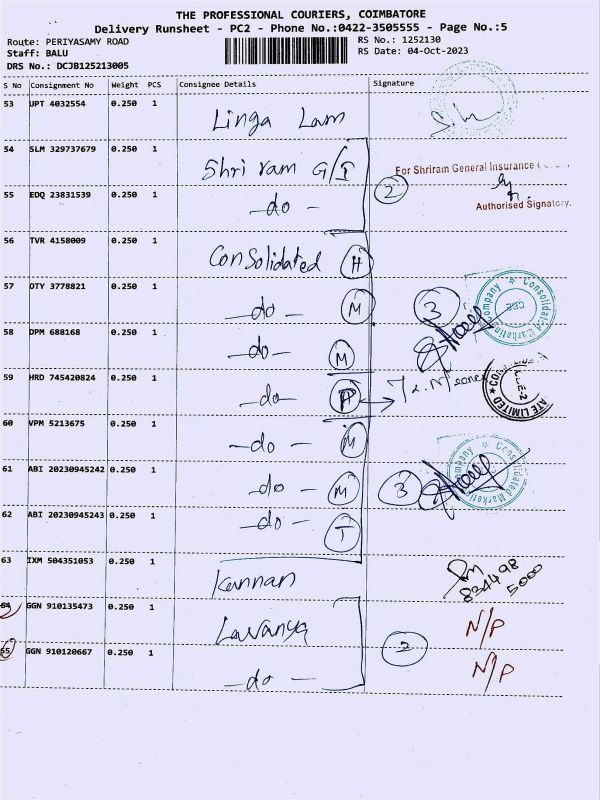 THE PROFESSIONAL COURIERS, COIMBATORE
Delivery Runsheet - PC2 - Phone No.:0422-3505555 - Page No.:5
Route: PERIYASAMY ROAD RS No.: 1252130
Staff: BALU RS Date: 04-Oct-2023
DRS No.: DCJB125213005
S No Consignment No Weight PCS Consignee Details Signature
53 UPT 4032554 0.250 1 Linga Lam
54 SLM 329737679 0.250 1 Shri ram G/I
For Shriram General Insurance
2
55 EDQ 23831539 0.250 1 - do -
Authorised Signatory.
56 TVR 4158009 0.250 1 Consolidated H
57 OTY 3778821 0.250 1 - do - M 3
Consolidated Marketing Company
CBE
58 DPM 688168 0.250 1 - do - M
59 HRD 745420824 0.250 1 - do - P
ATE LIMITED
60 VPM 5213675 0.250 1 - do - M
61 ABI 20230945242 0.250 1 - do - M 3
Consolidated Marketing Company
62 ABI 20230945243 0.250 1 - do - T
63 IXM 504351053 0.250 1 Kannan
834498
5000
64 GGN 910135473 0.250 1 Lavanya N/P
2
65 GGN 910120667 0.250 1 - do - N/P